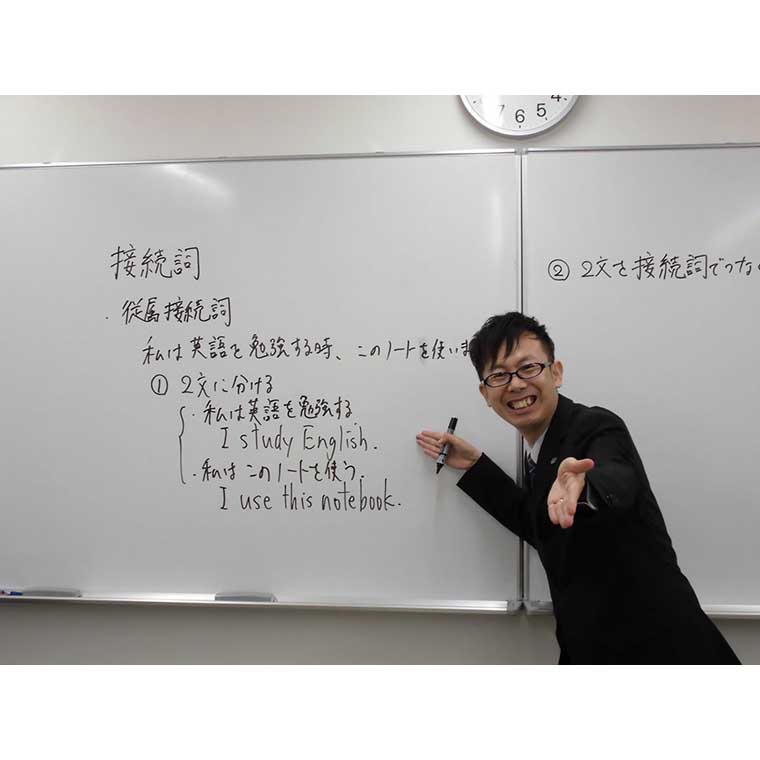 接続詞
・従属接続詞
私は英語を勉強する時、このノートを使いま
① 2文に分ける
・私は英語を勉強する。
I study English.
・私はこのノートを使う。
I use this notebook.
② 2文を接続詞でつな
7 6 5 4